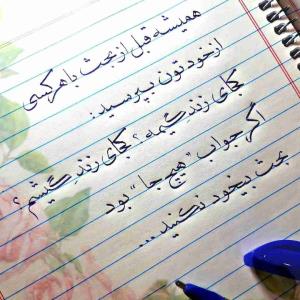 همیشه قبل از بحث با هرکسی
از خودتون بپرسید:
کجای زندگیمه؟ کجای زندگیشم؟
اگر جواب "هیچ جا" بود
بحث بیخود نکنید...